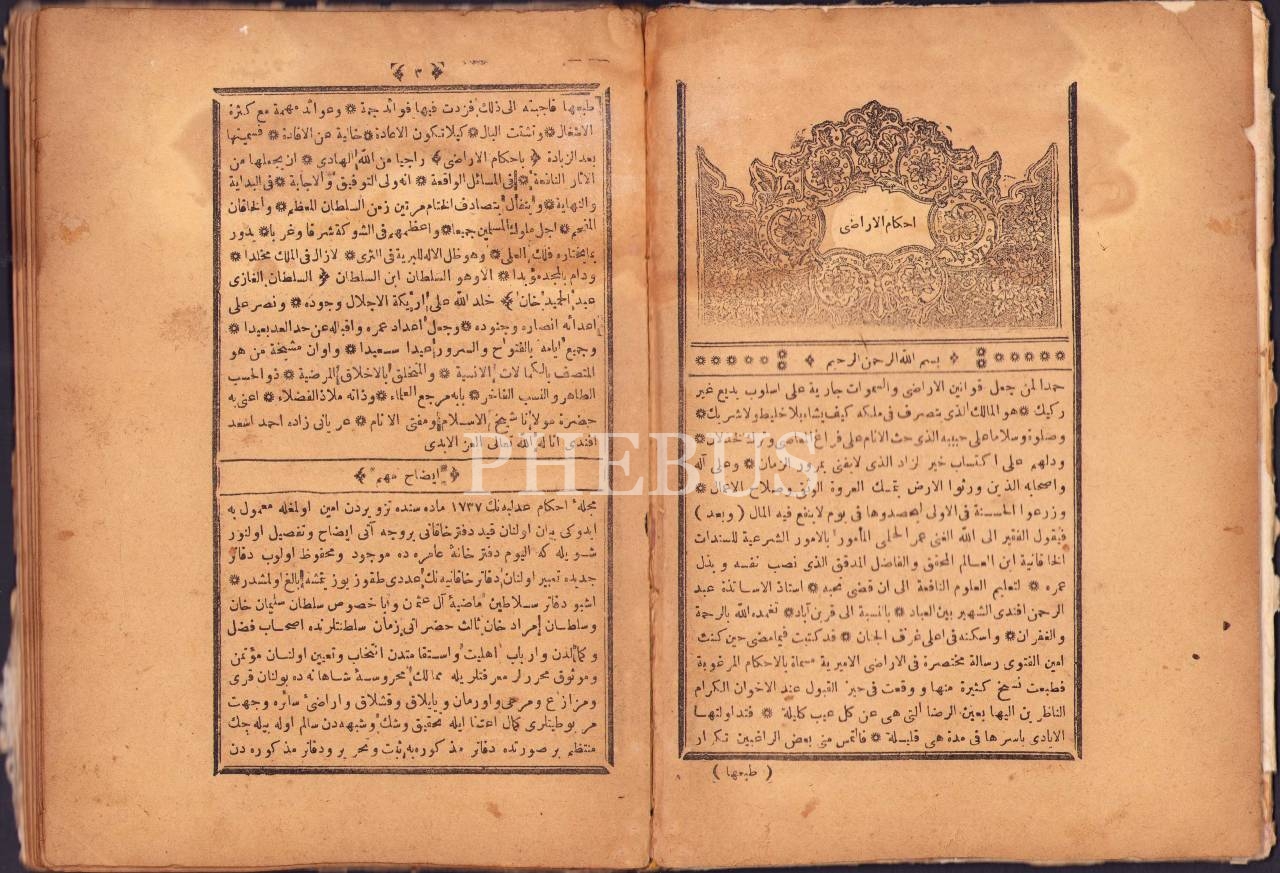 احكام الاراضى
بسم الله الرحمن الرحيم
حمدا لمن جعل قوانين الاراضى والسموات جارية على اسلوب بديع غير
ركيك ❋ هو المالك الذى يتصرف فى ملكه كيف يشاء بلا خليط ولا شريك ❋
وصلوة وسلاما على حبيبه الذى حث الانام على فراغ المعاصى وترك الخذلان ❋
ودلهم على اكتساب خير الزاد الذى لا يفنى بمرور الزمان ❋ وعلى آله
واصحابه الذين ورثوا الارض بتمسك العروة الوثقى وصلاح الاعمال ❋
وزرعوا الحسنة فى الاولى ليحصدوها فى يوم لا ينفع فيه المال ( وبعد )
فيقول الفقير الى الله الغنى عمر الحلمى المأمور بالامور الشرعية للسندات
الخاقانية ابن العالم المحقق والفاضل المدقق الذى نصب نفسه وبذل
عمره ❋ لتعليم العلوم النافعة الى ان قضى نحبه ❋ استاذ الاساتذة عبد
الرحمن افندى الشهير بين العباد ❋ بالنسبة الى قرين آباد ❋ تغمده الله بالرحمة
والغفران ❋ واسكنه فى اعلى غرف الجنان ❋ قد كتبت فيما مضى حين كنت
امين الفتوى رسالة مختصرة فى الاراضى الاميرية مسماة بالاحكام المرغوبة
فطبعت نسخ كثيرة منها ووقعت فى حيز القبول عند الاخوان الكرام
الناظرين اليها بعين الرضا التى هى عن كل عيب كليلة ❋ فتداولتها
الايادى باسرها فى مدة هى قليلة ❋ فالتمس منى بعض الراغبين تكرار
( طبعها )
٣
طبعها فاجبته الى ذلك فزدت فيها فوائد جمة ❋ وعوائد مهمة مع كثرة
الاشغال ❋ وتشتت البال ❋ كيلا تكون الاعادة ❋ خالية عن الافادة ❋ فسميتها
بعد الزيادة ﴿ باحكام الاراضى ﴾ راجيا من الله الهادى ❋ ان يجعلها من
الآثار النافعة ❋ فى المسائل الواقعة ❋ انه ولى التوفيق والاجابة ❋ فى البداية
والنهاية ❋ ويتفأل بتصادف الختام مرتين زمن السلطان المعظم ❋ والخاقان
المفخم ❋ اجل ملوك المسلمين جميعا ❋ واعظمهم فى الشوكة شرقا وغربا ❋ يدور
بما يختاره فلك العلى ❋ وهو ظل الاله للبرية فى الثرى ❋ لازال فى الملك مخلدا ❋
ودام بالمجد مؤيدا ❋ الا وهو السلطان ابن السلطان ﴿ السلطان الغازى
عبد الحميد خان ﴾ خلد الله على اريكة الاجلال وجوده ❋ ونصر على
اعدائه انصاره وجنوده ❋ وجعل اعداد عمره واقباله عن حد العد بعيدا ❋
وجميع ايامه بالفتوح والسرور عيدا سعيدا ❋ واوان مشيخة من هو
المتصف بالكمالات الانسية ❋ والمتخلق بالاخلاق المرضية ❋ ذو الحسب
الطاهر والنسب الفاخر ❋ بابه مرجع العلماء ❋ وذاته ملاذ الفضلاء ❋ اعنى به
حضرة مولانا شيخ الاسلام ❋ ومفتى الانام ❋ عريانى زاده احمد اسعد
افندى اناله الله تعالى العز الابدى
﴿ ايضاح مهم ﴾
مجلهٔ احكام عدليه نك ١٧٣٧ ماده سنده تزويردن امين اولمغله معمول به
ايدوكى بيان اولنان قيد دفتر خاقانى بروجه آتى ايضاح وتفصيل اولنور
شويله كه اليوم دفتر خانهٔ عامره ده موجود ومحفوظ اولوب دفاتر
جديده تعبير اولنان دفاتر خاقانيه نك عددى طقوز يوز يتمشه بالغ اولمشدر ❋
اشبو دفاتر سلاطين ماضيهٔ آل عثمان وبا خصوص سلطان سليمان خان
وسلطان مراد خان ثالث حضراتى زمان سلطنتلرنده اصحاب فضل
وكمالدن وارباب اهليت واستقامتدن انتخاب وتعيين اولنان مؤتمن
وموثوق محررلر معرفتلريله ممالك محروسهٔ شاهانه ده بولنان قرى
ومزارع ومرعى واورمان ويايلاق وقشلاق واراضئ سائره وجهت
مربوطيتلرى كمال اعتنا ايله تحقيق وشك وشبهه دن سالم اوله بيله جك
منتظم بر صورتده دفاتر مذكوره يه ثبت وتحرير ودفاتر مذكوره دن
PHEBUS